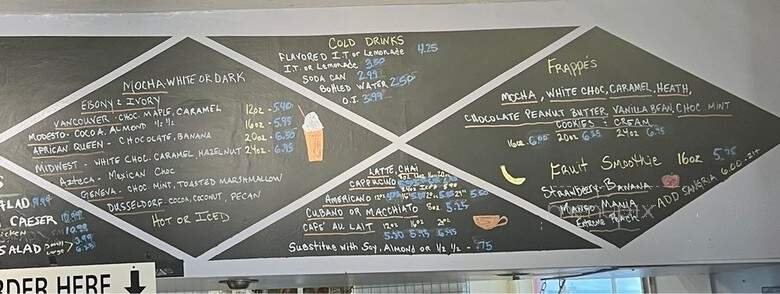 MOCHA-WHITE OR DARK
EBONY & IVORY
VANCOUVER - CHOC. MAPLE, CARAMEL
MODESTO - COCOA, ALMOND 1/2 1/2
AFRICAN QUEEN - CHOCOLATE, BANANA
MIDWEST - WHITE CHOC. CARAMEL, HAZELNUT
AZTECA - MEXICAN CHOC
GENEVA - CHOC MINT, TOASTED MARSHMALLOW
DUSSELDORF - COCOA, COCONUT, PECAN
HOT OR ICED
12oz - 5.40
16oz - 5.95
20oz - 6.50
24oz - 6.95
COLD DRINKS
FLAVORED I.T. or LEMONADE 4.25
I.T. or LEMONADE 3.50
SODA CAN 2.99
BOTTLED WATER 2.50
O.J. 3.99
LATTE, CHAI
CAPPUCCINO
AMERICANO
CUBANO OR MACCHIATO 5.25
CAFE' AU LAIT 12oz 16oz
Substitute with Soy, Almond or 1/2 1/2 - .75
FRAPPÉS
MOCHA, WHITE CHOC, CARAMEL, HEATH,
CHOCOLATE PEANUT BUTTER, VANILLA BEAN, CHOC. MINT
COOKIES & CREAM
16oz 6.05 20oz 6.35 24oz 6.75
FRUIT SMOOTHIE 16oz 5.75
STRAWBERRY-BANANA
MANGO MANIA
ALAD
CAESER
SALAD
ORDER HERE